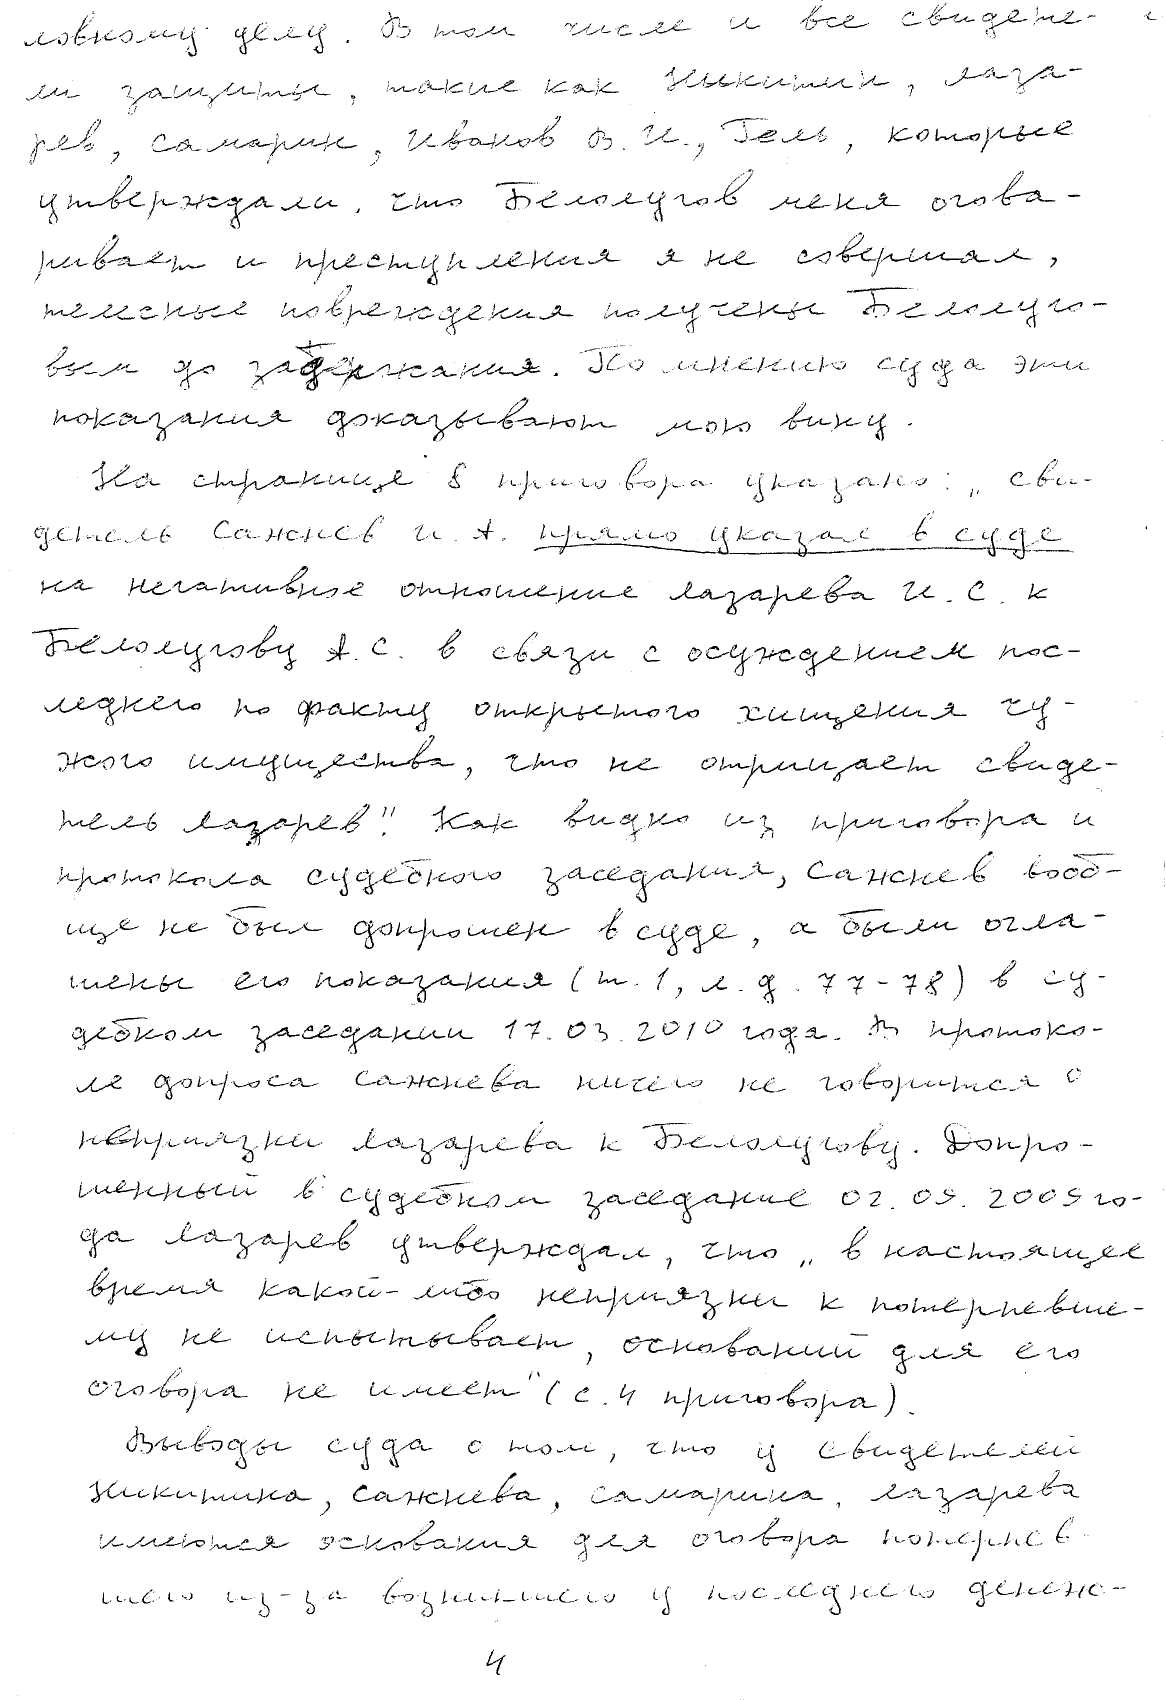 ловному делу. В том числе и все свидете-
ли защиты, такие как Никитин, Лаза-
рев, Самарин, Иванов В.И., Гель, которые
утверждали, что Белолугов меня огова-
ривает и преступления я не совершал,
телесные повреждения получены Белолуго-
вым до задержания. По мнению суда эти
показания доказывают мою вину.
На странице 8 приговора указано: „сви-
детель Сажнев И.А. прямо указал в суде
на негативное отношение Лазарева И.С. к
Белолугову А.С. в связи с осуждением пос-
леднего по факту открытого хищения чу-
жого имущества, что не отрицает свиде-
тель Лазарев". Как видно из приговора и
протокола судебного заседания, Сажнев вооб-
ще не был допрошен в суде, а были огла-
шены его показания (т.1, л.д. 77-78) в су-
дебном заседании 17.03.2010 года. В протоко-
ле допроса Сажнева ничего не говорится о
неприязни Лазарева к Белолугову. Допро-
шенный в судебном заседание 02.09.2009 го-
да Лазарев утверждал, что „в настоящее
время какой-либо неприязни к потерпевше-
му не испытывает, оснований для его
оговора не имеет" (с.4 приговора).
Выводы суда о том, что у свидетелей
Никитина, Сажнева, Самарина, Лазарева
имеются основания для оговора потерпев
шего из-за возникшего у последнего денеж-
4